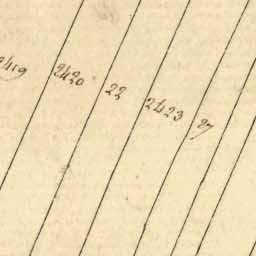 2419
2420
22
2423
27